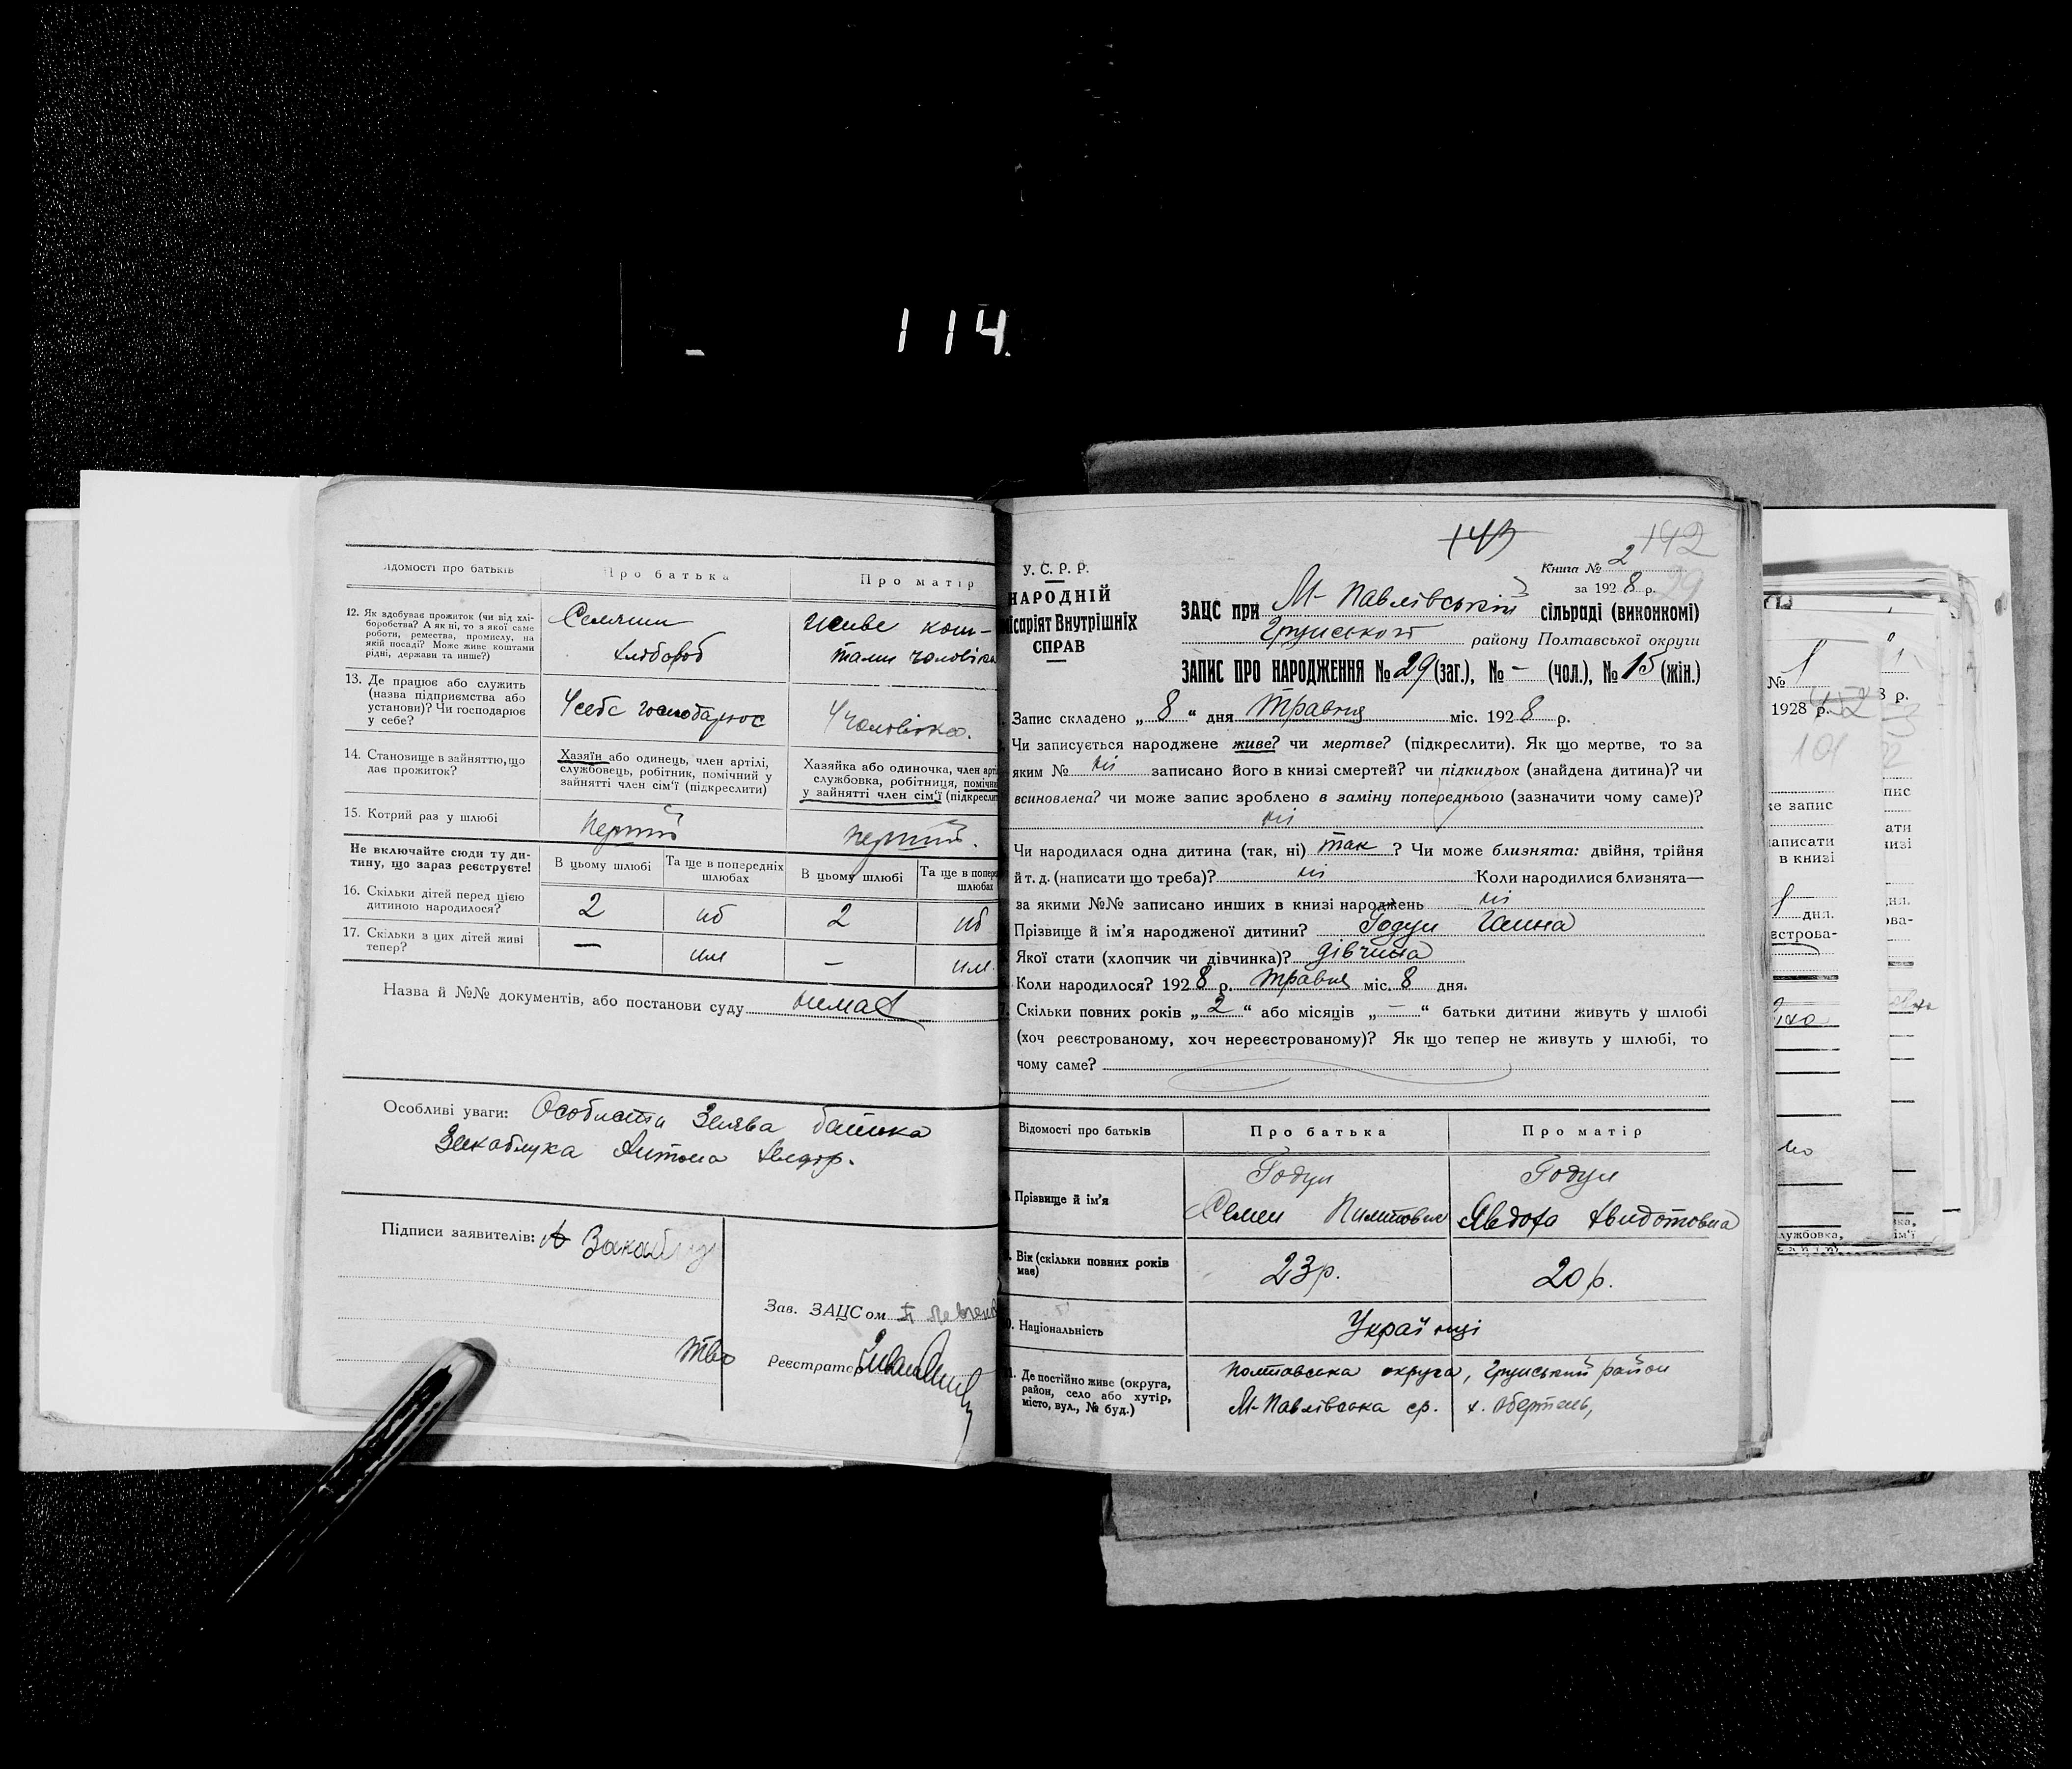 114.
відомості про батьків
Про батька
Про матір
12. Як здобуває прожиток (чи від хлі-
боробства? А як ні, то з якої саме
роботи, ремества, промислу, на
якій посаді? Може живе коштами
рідні, держави та инше?)
Селянин
хлібороб
живе кош-
тами чоловіка
13. Де працює або служить
(назва підприємства або
установи)? Чи господарює
у себе?
У себе господарює
У чоловіка.
14. Становище в зайняттю, що
дає прожиток?
Хазяїн або одинець, член артілі,
службовець, робітник, помічний у
зайнятті член сім'ї (підкреслити)
Хазяйка або одиночка, член арті
службовка, робітниця, помічн
у зайнятті член сім'ї (підкреслит
15. Котрий раз у шлюбі
перший
перший.
Не включайте сюди ту ди-
тину, що зараз реєструєте!
В цьому шлюбі
Та ще в попередніх
шлюбах
В цьому шлюбі
Та ще в попере
шлюбах
16. Скільки дітей перед цією
дитиною народилося?
2
2
17. Скільки з цих дітей живі
тепер?
—
—
Назва й №№ документів, або постанови суду немає
Особливі уваги: Особиста Заява батька
Закаблука Антона
Підписи заявителів: А Закаблук
Зав. ЗАЦСом
тво Реєстратор
143 142
У. С. Р. Р.
НАРОДНІЙ
місаріят Внутрішніх
СПРАВ
Книга № 2
за 1928 р.
29
ЗАЦС при М-Павлівській сільраді (виконкомі)
Грунського району Полтавської округи
ЗАПИС ПРО НАРОДЖЕННЯ № 29 (заг.), № – (чол.), № 15 (жін.)
Запис складено „ 8 " дня Травня міс. 1928 р.
Чи записується народжене живе? чи мертве? (підкреслити). Як що мертве, то за
яким № ні записано його в книзі смертей? чи підкидьок (знайдена дитина)? чи
всиновлена? чи може запис зроблено в заміну попереднього (зазначити чому саме)?
ні
Чи народилася одна дитина (так, ні) так ? Чи може близнята: двійня, трійня
й т. д. (написати що треба)? ні Коли народилися близнята—
за якими №№ записано инших в книзі народжень ні
Прізвище й ім'я народженої дитини? Годун Ганна
Якої стати (хлопчик чи дівчинка)? дівчина
Коли народилося? 1928 р. травня міс. 8 дня.
Скільки повних років „ 2 " або місяців „ — " батьки дитини живуть у шлюбі
(хоч реєстрованому, хоч нереєстрованому)? Як що тепер не живуть у шлюбі, то
чому саме?
Відомості про батьків
Про батька
Про матір
Прізвище й ім'я
Годун
Семен Пилипович
Годун
Явдоха
Вік (скільки повних років
має)
23 р.
20 р.
Національність
Українці
Де постійно живе (округа,
район, село або хутір,
місто, вул., № буд.)
Полтавська округа, Грунський район
М-Павлівська ср. х.